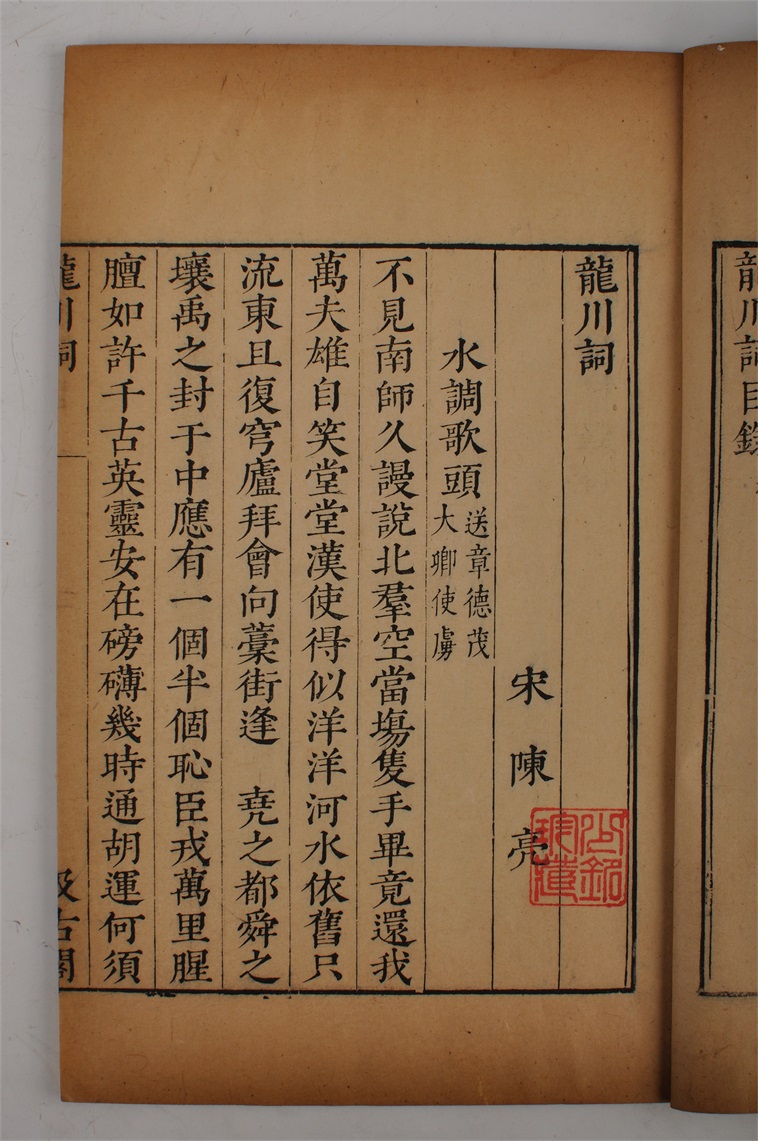 龍川詞目錄
龍川詞
宋陳亮
水調歌頭 送章德茂
大卿使虜
不見南師久謾說北羣空當塲隻手畢竟還我
萬夫雄自笑堂堂漢使得似洋洋河水依舊只
流東且復穹廬拜會向藁街逢 堯之都舜之
壤禹之封于中應有一個半個恥臣戎萬里腥
膻如許千古英靈安在磅礴幾時通胡運何須
龍川詞
汲古閣